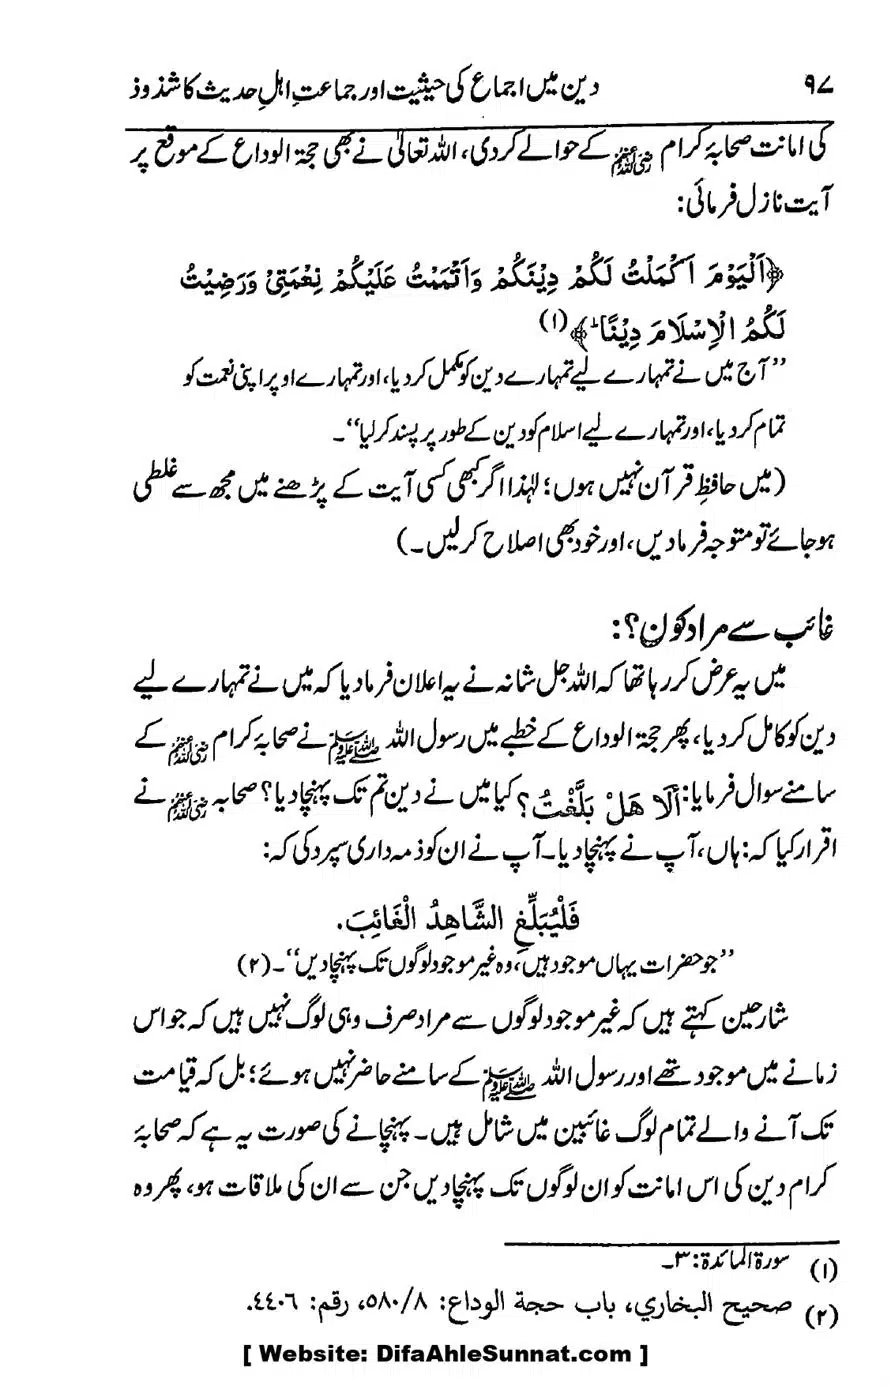 ۹۷ دین میں اجماع کی حیثیت اور جماعتِ اہلِ حدیث کا شذوذ
کی امانت صحابۂ کرام رضی اللہ عنہم کے حوالے کردی، اللہ تعالیٰ نے بھی حجۃ الوداع کے موقع پر
آیت نازل فرمائی:
﴿اَلْيَوْمَ اَكْمَلْتُ لَكُمْ دِيْنَكُمْ وَاَتْمَمْتُ عَلَيْكُمْ نِعْمَتِيْ وَرَضِيْتُ
لَكُمُ الْاِسْلَامَ دِيْنًا ؕ﴾ (۱)
’’آج میں نے تمہارے لیے تمہارے دین کو مکمل کردیا، اور تمہارے اوپر اپنی نعمت کو
تمام کردیا، اور تمہارے لیے اسلام کو دین کے طور پر پسند کرلیا‘‘۔
(میں حافظِ قرآن نہیں ہوں؛ لہٰذا اگر کبھی کسی آیت کے پڑھنے میں مجھ سے غلطی
ہوجائے تو متوجہ فرمادیں، اور خود بھی اصلاح کرلیں۔)
غائب سے مراد کون؟:
میں یہ عرض کررہا تھا کہ اللہ جل شانہ نے یہ اعلان فرمادیا کہ میں نے تمہارے لیے
دین کو کامل کردیا، پھر حجۃ الوداع کے خطبے میں رسول اللہ ﷺ نے صحابۂ کرام رضی اللہ عنہم کے
سامنے سوال فرمایا: أَلَا هَلْ بَلَّغْتُ؟ کیا میں نے دین تم تک پہنچادیا؟ صحابہ رضی اللہ عنہم نے
اقرار کیا کہ: ہاں، آپ نے پہنچادیا۔ آپ نے ان کو ذمہ داری سپرد کی کہ:
فَلْيُبَلِّغِ الشَّاهِدُ الْغَائِبَ.
’’جو حضرات یہاں موجود ہیں، وہ غیر موجود لوگوں تک پہنچادیں‘‘۔(۲)
شارحین کہتے ہیں کہ غیر موجود لوگوں سے مراد صرف وہی لوگ نہیں ہیں کہ جو اس
زمانے میں موجود تھے اور رسول اللہ ﷺ کے سامنے حاضر نہیں ہوئے؛ بل کہ قیامت
تک آنے والے تمام لوگ غائبین میں شامل ہیں۔ پہنچانے کی صورت یہ ہے کہ صحابۂ
کرام دین کی اس امانت کو ان لوگوں تک پہنچادیں جن سے ان کی ملاقات ہو، پھر وہ
(۱) سورۃ المائدۃ: ۳۔
(۲) صحيح البخاري، باب حجة الوداع: ٥٨٠/٨، رقم: ٤٤٠٦.
[ Website: DifaAhleSunnat.com ]